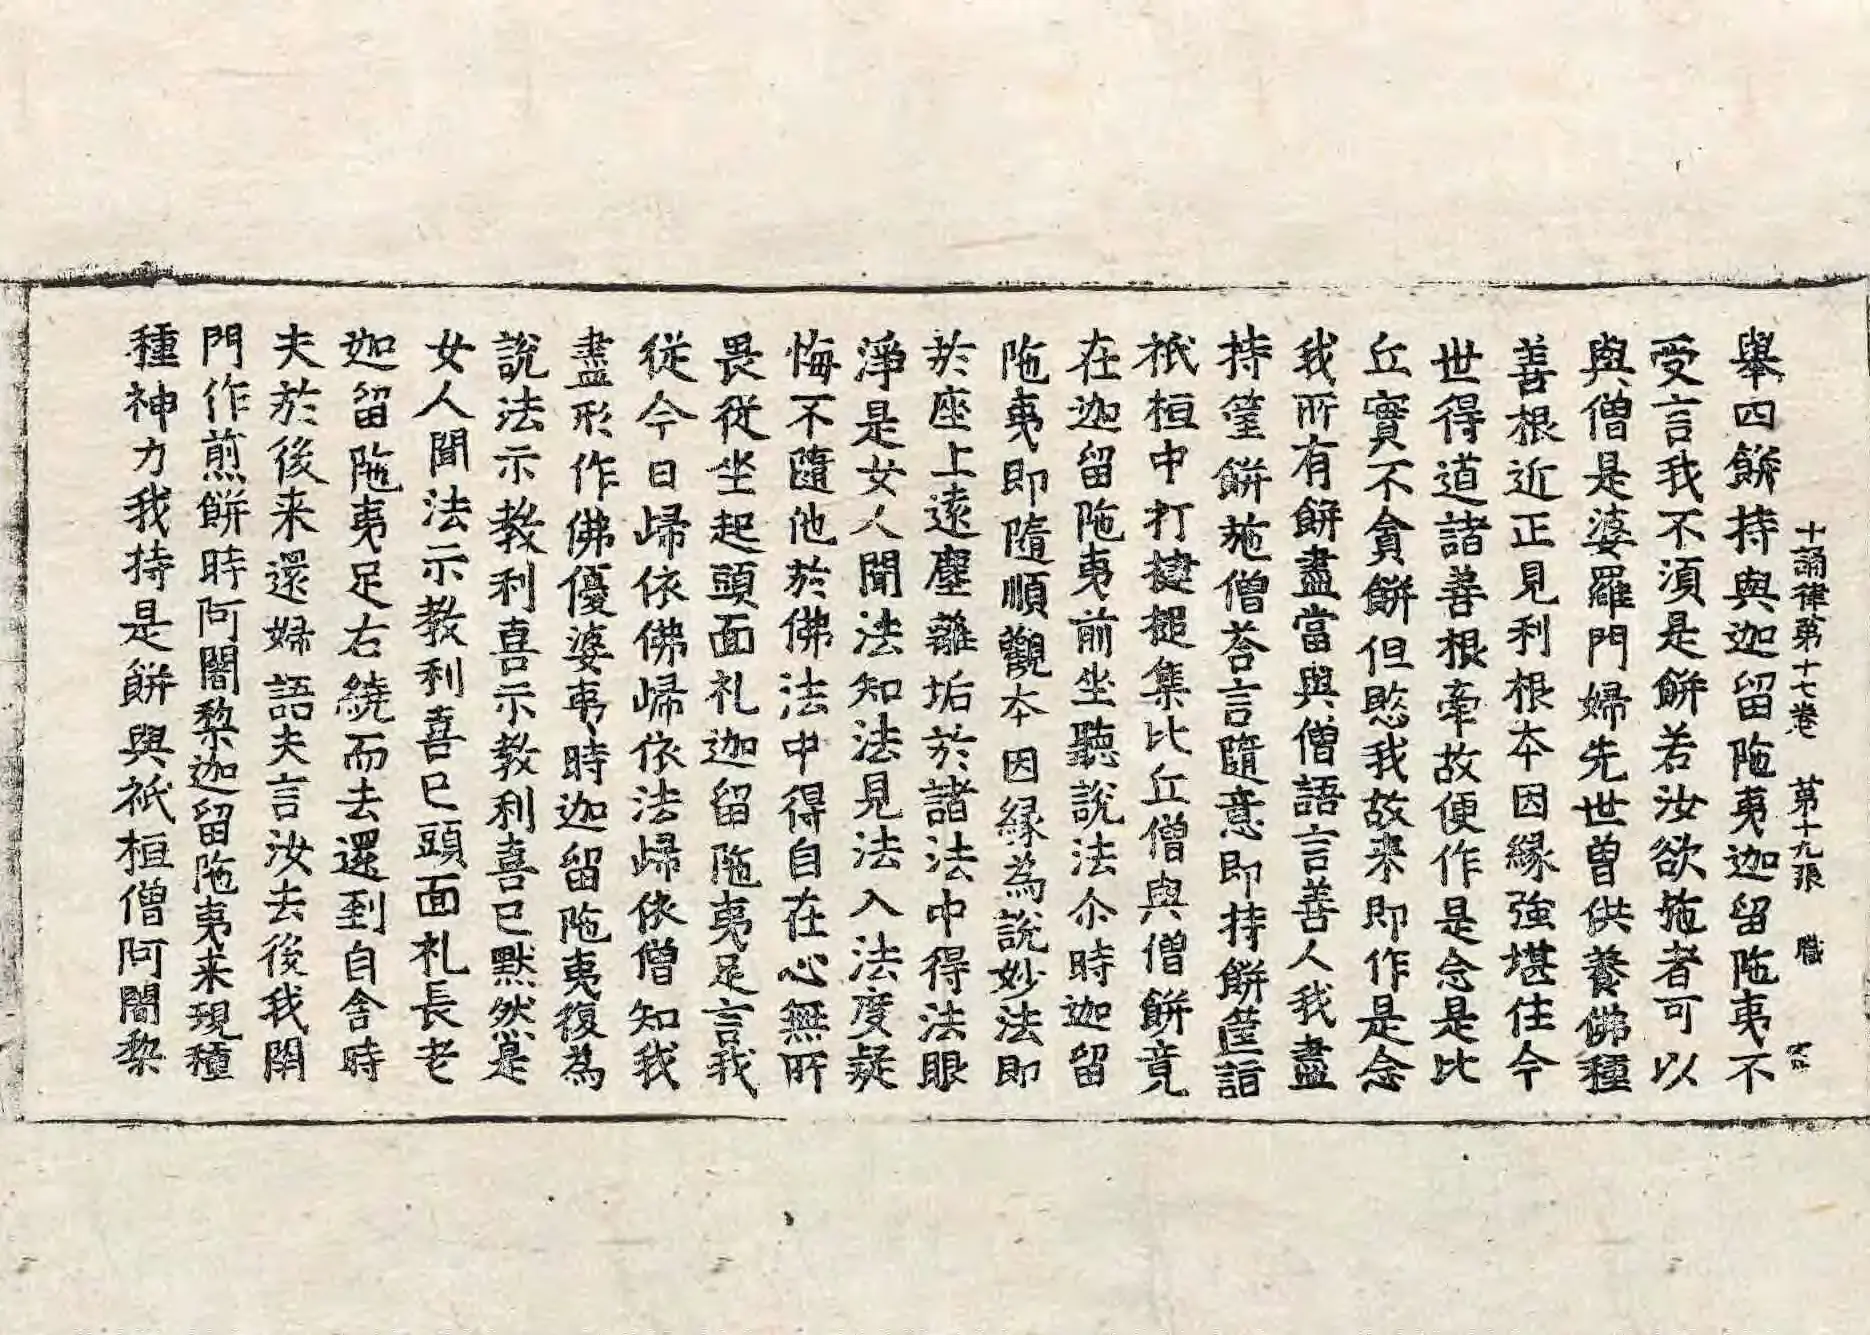 十誦律第十七卷　第十九張　職
舉四餅持與迦留陁夷迦留陁夷不
受言我不湏是餅若汝欲施者可以
與僧是婆羅門婦先世曽供養佛種
善根近正見利根夲因縁強堪任今
世得道諸善根牽故便作是念是比
丘實不貪餅但愍我故来即作是念
我所有餅盡當與僧語言善人我盡
持篂餅施僧荅言隨意即持餅筐詣
祇桓中打揵搥集比丘僧與僧餅竟
在迦留陁夷前坐聽說法尒時迦留
陁夷即隨順觀夲因縁為說妙法即
於座上遠塵離垢於諸法中得法眼
淨是女人聞法知法見法入法度疑
悔不隨他於佛法中得自在心無所
畏從坐起頭面礼迦留陁夷足言我
從今日歸依佛歸依法歸依僧知我
盡形作佛優婆夷時迦留陁夷復為
說法示教利喜示教利喜已默然是
女人聞法示教利喜已頭面礼長老
迦留陁夷足右繞而去還到自舍時
夫於後来還婦語夫言汝去後我閇
門作煎餅時阿闍黎迦留陁夷来現種
種神力我持是餅與祇桓僧阿闍黎